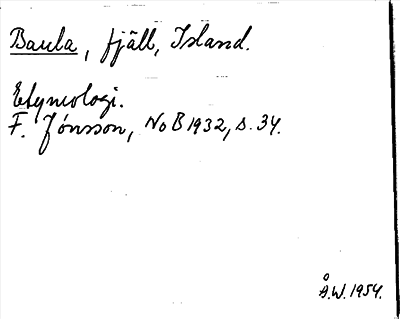 Baula, fjäll, Island.
Etymologi.
F. Jónsson, NoB 1932, s. 34.
Å.W. 1954.